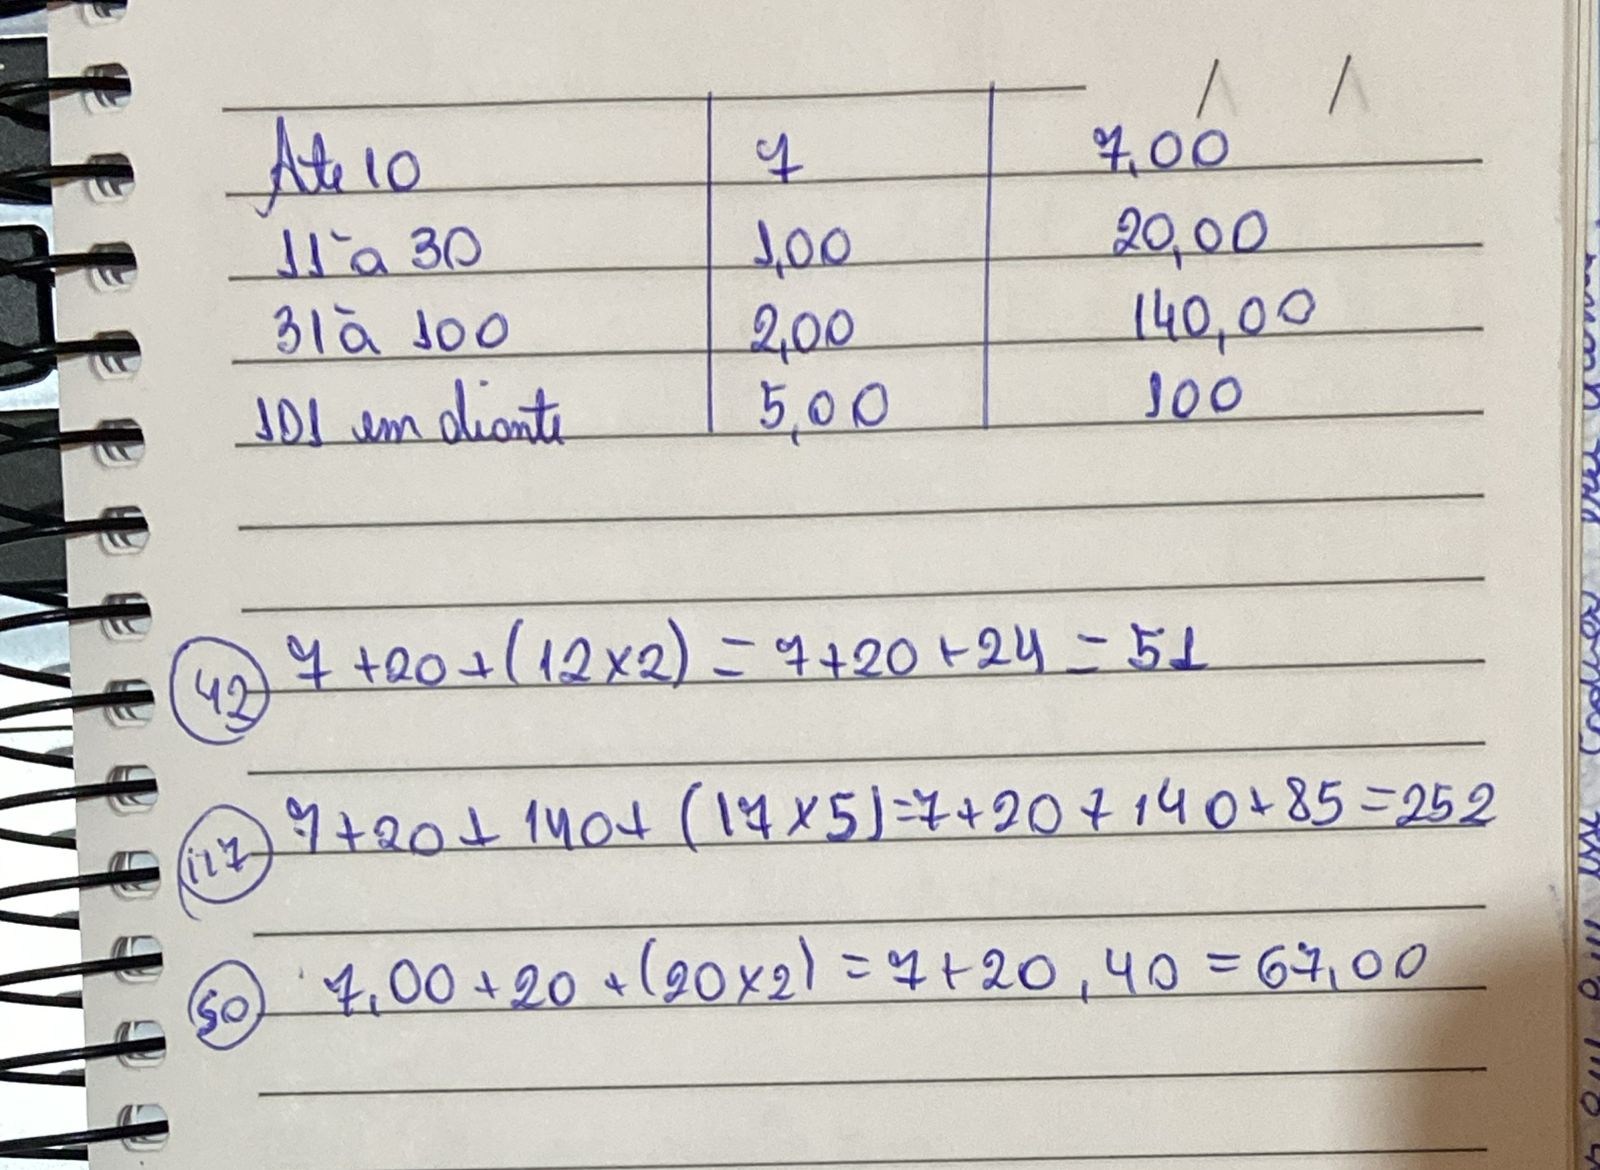 Até 10 7 7,00
11 à 30 1,00 20,00
31 à 100 2,00 140,00
101 em diante 5,00 100
42 7 + 20 + (12 x 2) = 7 + 20 + 24 = 51
117 7 + 20 + 140 + (17 x 5) = 7 + 20 + 140 + 85 = 252
50 7,00 + 20 + (20 x 2) = 7 + 20, 40 = 67,00